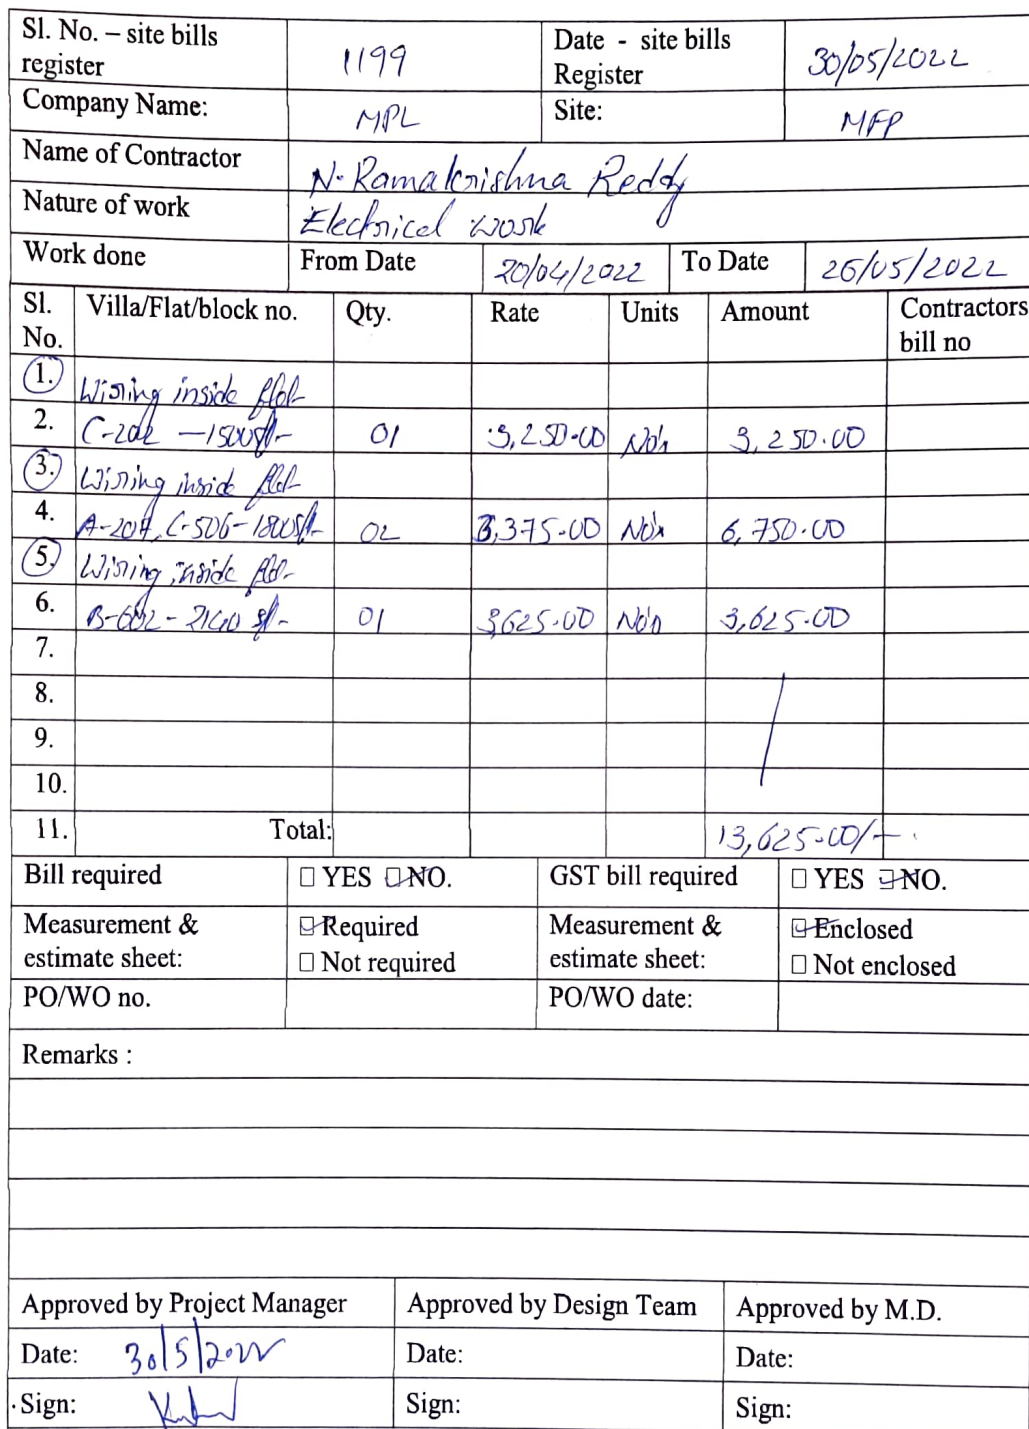 Sl. No. – site bills register 1199 Date - site bills Register 30/05/2022
Company Name: MPL Site: MFP
Name of Contractor N. Ramakrishna Reddy
Nature of work Electrical work
Work done From Date 20/04/2022 To Date 26/05/2022
Sl. No. Villa/Flat/block no. Qty. Rate Units Amount Contractors bill no
1. Wiring inside flat
2. C-202 – 1500sft- 01 3,250.00 No's 3,250.00
3. Wiring inside flat
4. C-506-1800sft- 02 3,375.00 No's 6,750.00
5. Wiring inside flat-
6. 01 3,625.00 No's 3,625.00
7.
8.
9.
10.
11. Total: 13,625.00/-
Bill required □ YES □ NO. GST bill required □ YES □ NO.
Measurement & estimate sheet: □ Required □ Not required Measurement & estimate sheet: □ Enclosed □ Not enclosed
PO/WO no. PO/WO date:
Remarks :
Approved by Project Manager Approved by Design Team Approved by M.D.
Date: 30/5/2022 Date: Date:
Sign: Sign: Sign: